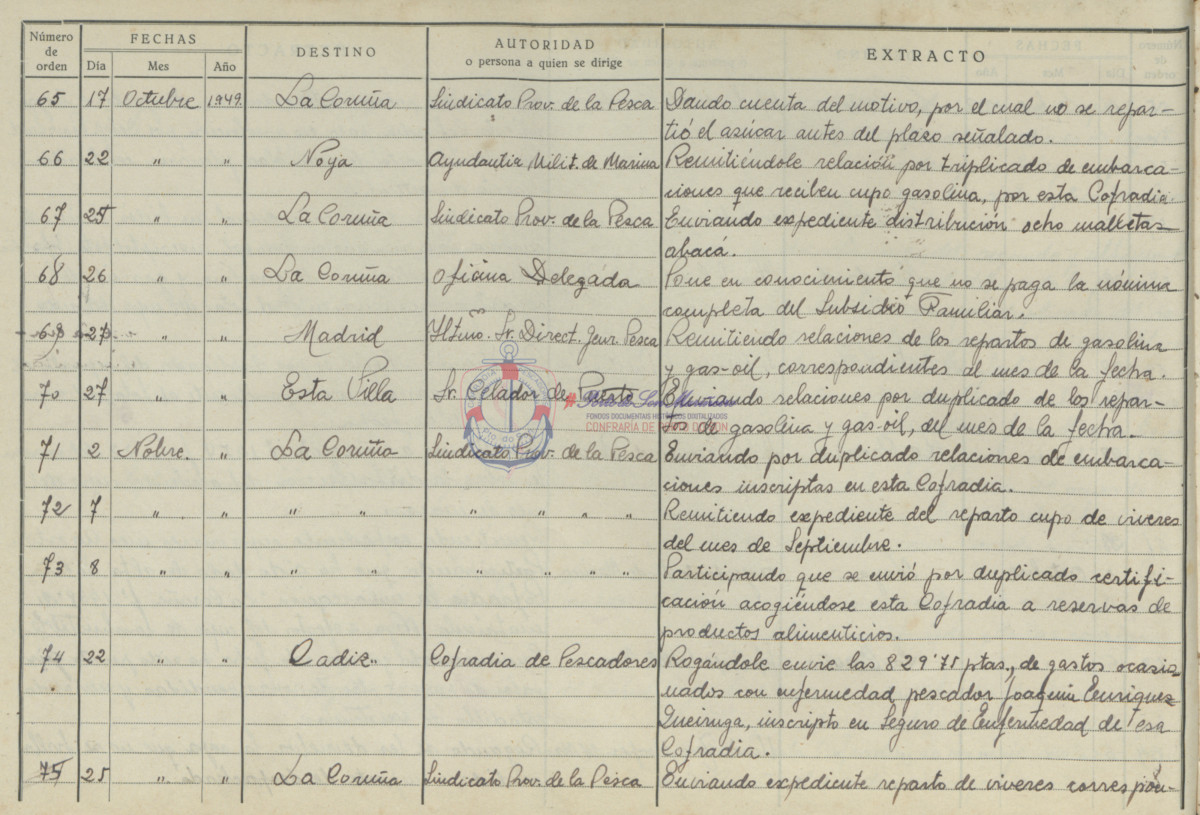 Número de orden FECHAS DESTINO AUTORIDAD o persona a quien se dirige EXTRACTO
Día Mes Año
65 17 Octubre 1949. La Coruña Sindicato Prov. de la Pesca Dando cuenta del motivo, por el cual no se repar-
tió el azúcar antes del plazo señalado.
66 22 " " Noya Ayudantia Milit. de Marina Remitiéndole relación por triplicado de embarca-
ciones que reciben cupo gasolina, por esta Cofradia
67 25 " " La Coruña Sindicato Prov. de la Pesca Enviando expediente distribución ocho malletas
abacá.
68 26 " " La Coruña Oficina Delegada Pone en conocimiento que no se paga la nómina
completa del Subsidio Familiar.
69 27 " " Madrid Iltmo. Sr. Direct. Jenr. Pesca Remitiendo relaciones de los repartos de gasolina
y gas-oil, correspondientes al mes de la fecha.
70 27 " " Esta Villa Sr. Celador de Puerto Enviando relaciones por duplicado de los repar-
tos de gasolina y gas-oil, del mes de la fecha.
FONDOS DOCUMENTAIS HISTÓRICOS DIXITALIZADOS
CONFRARÍA DE PORTO DO SON
71 2 Nobre. " La Coruña Sindicato Prov. de la Pesca Enviando por duplicado relaciones de embarca-
ciones inscriptas en esta Cofradia.
72 7 " " " " " " " " Remitiendo expediente del reparto cupo de viveres
del mes de Septiembre.
73 8 " " " " " " " " Participando que se envió por duplicado certifi-
cación acogiéndose esta Cofradia a reservas de
productos alimenticios.
74 22 " " Cadiz Cofradia de Pescadores Rogándole envie las 829'75 ptas., de gastos ocasio
nados con enfermedad pescador Joaquin Enriquez
Queiruga, inscripto en Seguro de Enfermedad de esa
Cofradia.
75 25 " " La Coruña Sindicato Prov. de la Pesca Enviando expediente reparto de viveres correspon-